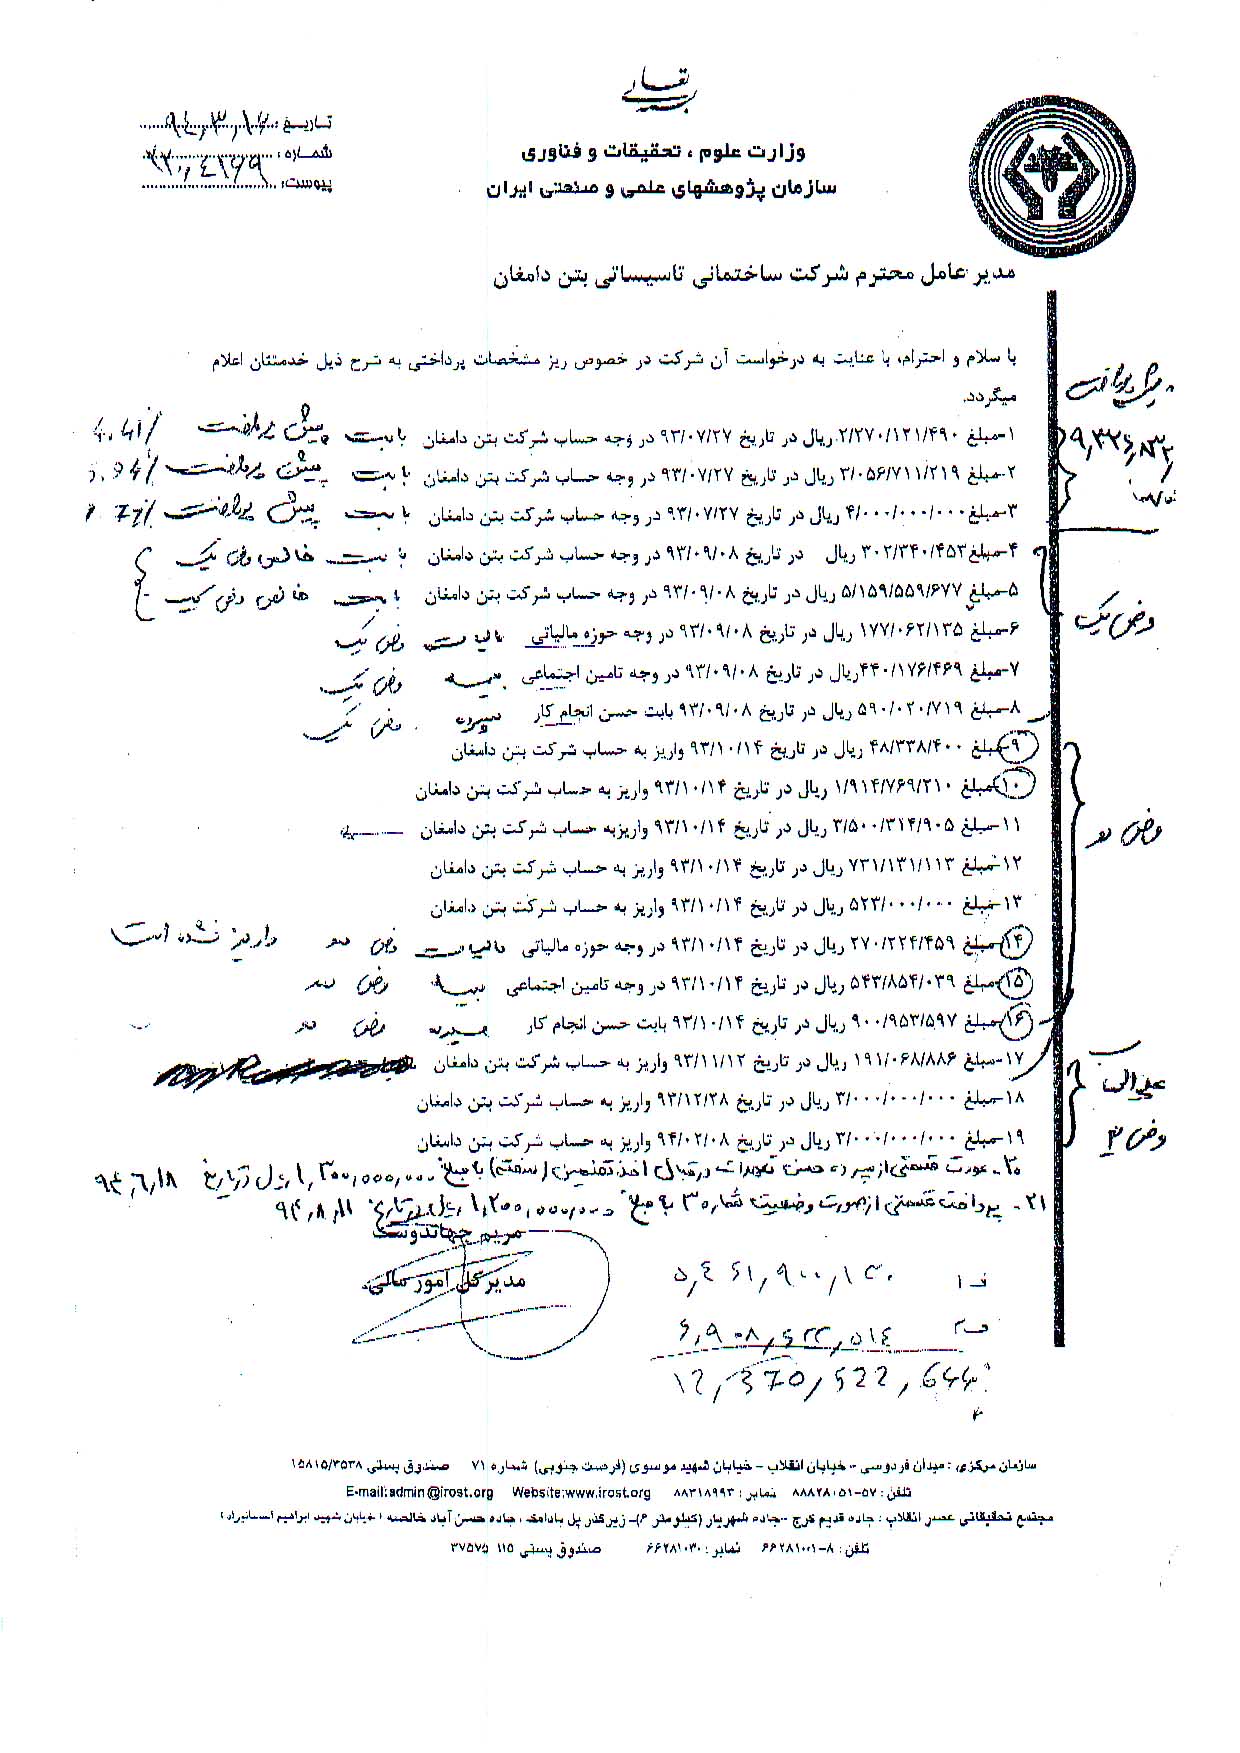 بسمه تعالی
وزارت علوم ، تحقیقات و فناوری
سازمان پژوهشهای علمی و صنعتی ایران
تاریخ :
شماره :
پیوست:
مدیر عامل محترم شرکت ساختمانی تاسیساتی بتن دامغان
با سلام و احترام، با عنایت به درخواست آن شرکت در خصوص ریز مشخصات پرداختی به شرح ذیل خدمتتان اعلام
میگردد.
۱-مبلغ ۲/۲۷۰/۱۲۱/۴۹۰ ریال در تاریخ ۹۳/۰۷/۲۷ در وجه حساب شرکت بتن دامغان بابت پیش پرداخت
۲-مبلغ ۳/۰۵۶/۷۱۱/۲۱۹ ریال در تاریخ ۹۳/۰۷/۲۷ در وجه حساب شرکت بتن دامغان بابت پیش پرداخت
۳-مبلغ ۴/۰۰۰/۰۰۰/۰۰۰ ریال در تاریخ ۹۳/۰۷/۲۷ در وجه حساب شرکت بتن دامغان بابت پیش پرداخت
۴-مبلغ ۳۰۲/۳۴۰/۴۵۳ ریال در تاریخ ۹۳/۰۹/۰۸ در وجه حساب شرکت بتن دامغان بابت خالص وض یک
۵-مبلغ ۵/۱۵۹/۵۵۹/۶۷۷ ریال در تاریخ ۹۳/۰۹/۰۸ در وجه حساب شرکت بتن دامغان بابت خالص وض یک
۶-مبلغ ۱۷۷/۰۶۲/۱۳۵ ریال در تاریخ ۹۳/۰۹/۰۸ در وجه حوزه مالیاتی مالیات وض یک
۷-مبلغ ۴۴۰/۱۷۶/۴۶۹ریال در تاریخ ۹۳/۰۹/۰۸ در وجه تامین اجتماعی بیمه وض یک
۸-مبلغ ۵۹۰/۰۲۰/۷۱۹ ریال در تاریخ ۹۳/۰۹/۰۸ بابت حسن انجام کار سپرده وض یک
۹-مبلغ ۴۸/۳۳۸/۴۰۰ ریال در تاریخ ۹۳/۱۰/۱۴ واریز به حساب شرکت بتن دامغان
۱۰-مبلغ ۱/۹۱۴/۷۶۹/۲۱۰ ریال در تاریخ ۹۳/۱۰/۱۴ واریز به حساب شرکت بتن دامغان
۱۱-مبلغ ۳/۵۰۰/۳۱۴/۹۰۵ ریال در تاریخ ۹۳/۱۰/۱۴ واریزبه حساب شرکت بتن دامغان
۱۲-مبلغ ۷۳۱/۱۳۱/۱۱۳ ریال در تاریخ ۹۳/۱۰/۱۴ واریز به حساب شرکت بتن دامغان
۱۳-مبلغ ۵۲۳/۰۰۰/۰۰۰ ریال در تاریخ ۹۳/۱۰/۱۴ واریز به حساب شرکت بتن دامغان
۱۴-مبلغ ۲۷۰/۲۲۴/۴۵۹ ریال در تاریخ ۹۳/۱۰/۱۴ در وجه حوزه مالیاتی مالیات وض دو واریز نشده است
۱۵-مبلغ ۵۴۳/۸۵۴/۰۳۹ ریال در تاریخ ۹۳/۱۰/۱۴ در وجه تامین اجتماعی بیمه وض دو
۱۶-مبلغ ۹۰۰/۹۵۳/۵۹۷ ریال در تاریخ ۹۳/۱۰/۱۴ بابت حسن انجام کار سپرده وض دو
۱۷-مبلغ ۱۹۱/۰۶۸/۸۸۶ ریال در تاریخ ۹۳/۱۱/۱۲ واریز به حساب شرکت بتن دامغان
۱۸-مبلغ ۳/۰۰۰/۰۰۰/۰۰۰ ریال در تاریخ ۹۳/۱۲/۲۸ واریز به حساب شرکت بتن دامغان
۱۹-مبلغ ۳/۰۰۰/۰۰۰/۰۰۰ ریال در تاریخ ۹۴/۰۲/۰۸ واریز به حساب شرکت بتن دامغان
۲۰- عودت قسمتی از سپرده حسن تعهدات در قبال اخذ تضمین (سفته) با مبلغ ۱,۳۰۰,۰۰۰,۰۰۰ ریال در تاریخ ۹۴,۶,۱۸
۲۱- پرداخت قسمتی از صورت وضعیت شماره ۳ به مبلغ ۱,۲۰۰,۰۰۰,۰۰۰ ریال در تاریخ ۹۴,۸,۱۱
مریم جهاندوست
مدیرکل امور مالی
پیش پرداخت
وض یک
وض دو
علی الحساب
وض ۳
۵,۴۶۱,۹۰۰,۱۳۰
۶,۹۰۸,۶۲۲,۵۱۴
12,370,522,644
سازمان مرکزی : میدان فردوسی - خیابان انقلاب - خیابان شهید موسوی (فرصت جنوبی) شماره ۷۱ صندوق پستی ۱۵۸۱۵/۳۵۳۸
تلفن : ۵۷-۸۸۸۲۸۰۵۱ نمابر : ۸۸۳۱۸۹۹۳ Website:www.irost.org E-mail:admin@irost.org
مجتمع تحقیقاتی عصر انقلاب : جاده قدیم کرج - جاده شهریار (کیلومتر ۶)- زیرگذر پل بادامک ، جاده حسن آباد خالصه (خیابان شهید ابراهیم احسانیراد)
تلفن : ۸-۶۶۲۸۱۰۰۱ نمابر : ۶۶۲۸۱۰۳۰ صندوق پستی ۱۱۵ ۳۷۵۷۵